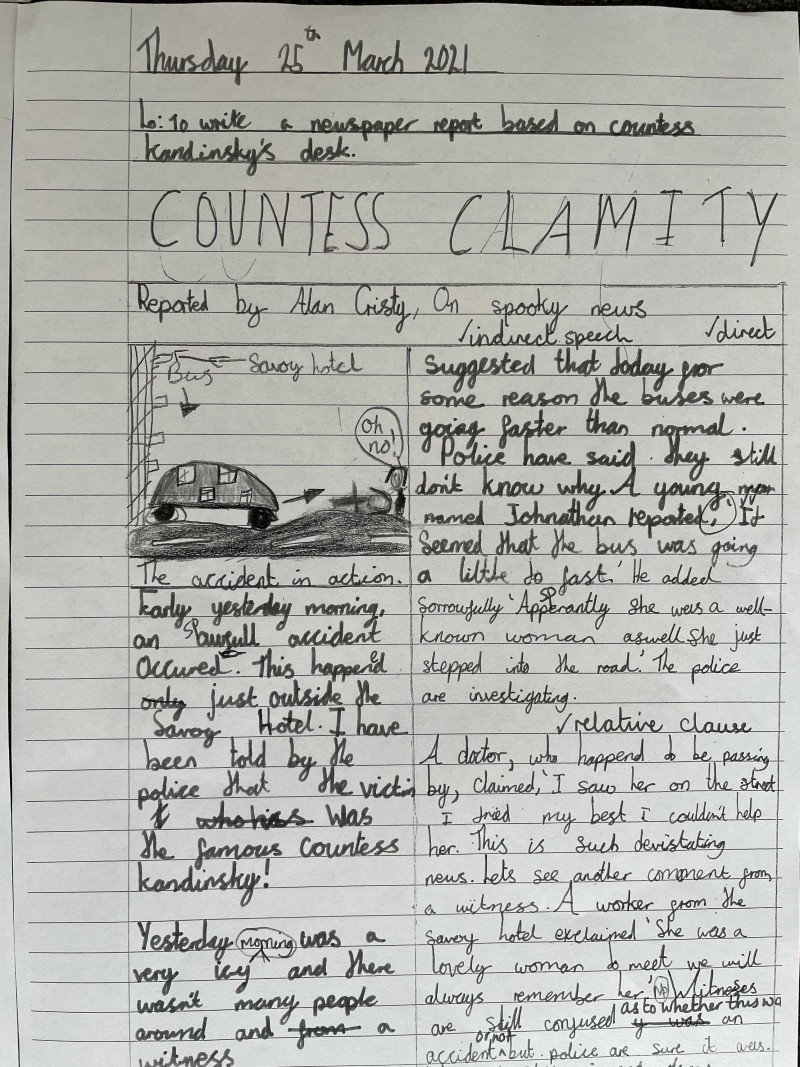 Thursday 25th March 2021
Lo: To write a newspaper report based on countess
Kandinsky's desk.
COUNTESS CLAMITY
Reported by Alan Cristy, On spooky news
Bus
Savoy hotel
Oh no!
The accident in action.
Early yesterday morning,
an sp awfull accident
Occured. This happend
only just outside the
Savoy Hotel. I have
been told by the
police that the victim
was
the famous countess
kandinsky!
Yesterday morning was a
very icy and there
wasn't many people
around and from a
witness
✓indirect speech ✓direct
Suggested that today for
some reason the buses were
going faster than normal.
Police have said they still
don't know why A young man
named Johnathan reported, 'It
Seemed that the bus was going
a little to fast.' He added
sorrowfully 'Apperantly sp she was a well-
known woman aswell she just
stepped into the road.' The police
are investigating.
✓relative clause
A doctor, who happend to be passing
by, claimed, 'I saw her on the street
I tried my best i couldn't help
her. This is such devistating
news. Lets see another comment from
a witness. A worker from the
savoy hotel exclaimed 'She was a
lovely woman to meet we will
always remember her.' NP Witneses
are still confused as to whether this was an
accident or not but police are sure it was.